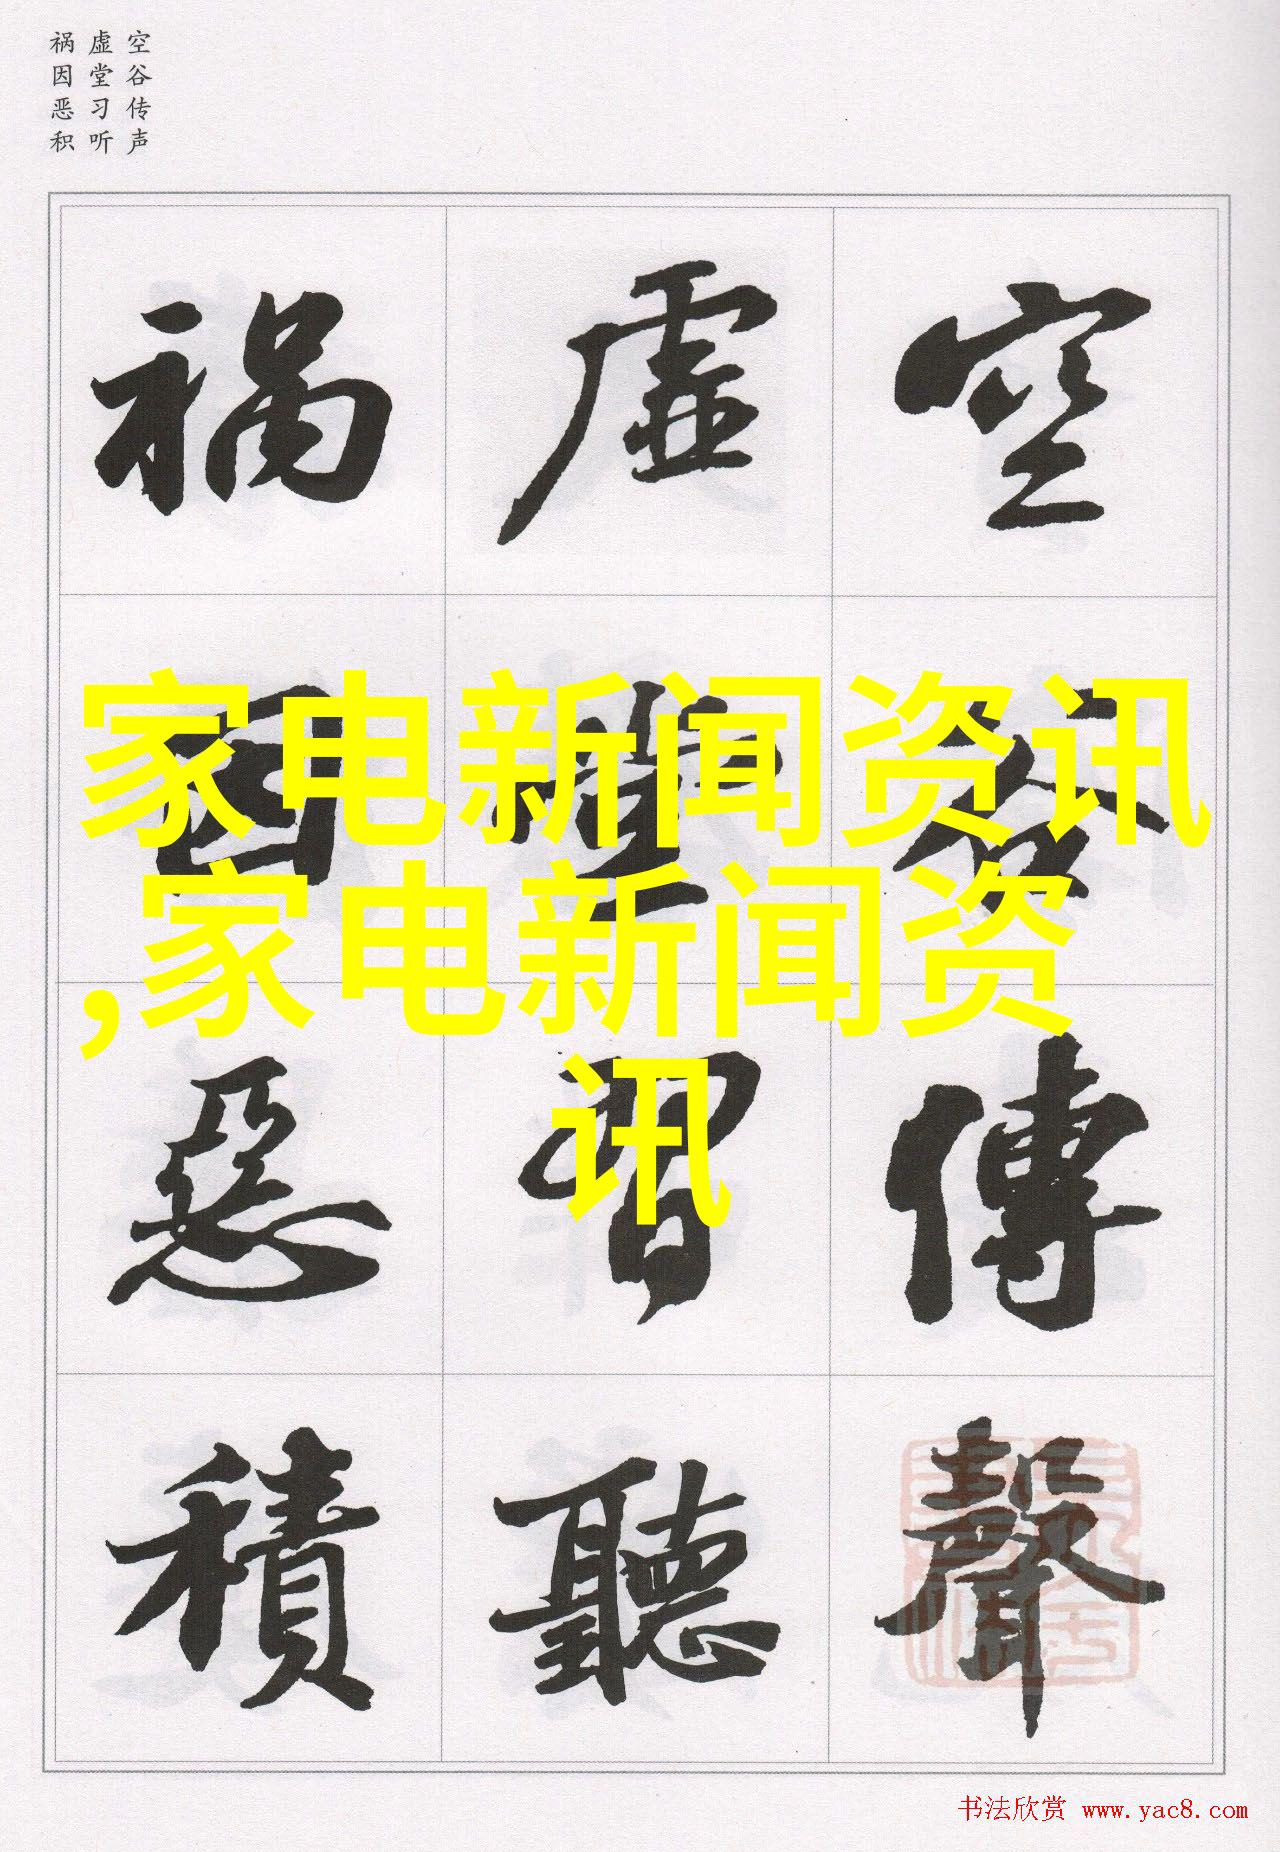 空谷传声
虚堂习听
祸因恶积
空谷傳聲
虛堂習聽
禍因惡積
家电新闻资讯
,家电新闻资
讯
书法欣赏 www.yac8.com